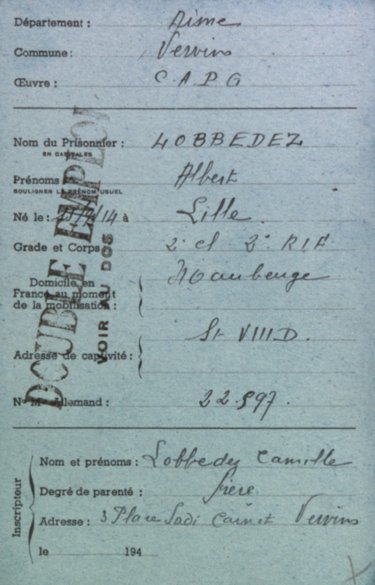 Département : Aisne
Commune : Vervins
Œuvre : C A P G
Nom du Prisonnier : LOBBEDEZ
EN CAPITALES
Prénoms Albert
SOULIGNER LE PRÉNOM USUEL
Né le : 14 à Lille
Grade et Corps 2e cl 3e R I F
Domicile en
France au moment Maubeuge
de la mobilisation :
St VIII D.
Adresse de captivité :
No Allemand : 22.597.
DOUBLE EMPLOI
VOIR AU DOS
Inscripteur
Nom et prénoms : Lobbedez Camille
Degré de parenté : frère
Adresse : 3 Place Sadi Carnot Vervins
le 194